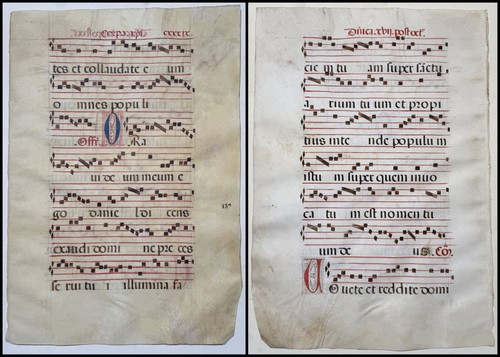 tes et collaudate e um
o mnes populi
Offr. O RA
ui de um meum e
go danie l di cens
exaudi domi ne pre ces
se rui tu i illumina fa
Dn̄ica. xvii. post oct.
cie m tu am super sāctu
a rium tu um et propi
tius inte nde populu m
istu m super quem inuo
ca tu m est no men tu
um de us. Cō.
U Ouete et reddite domi